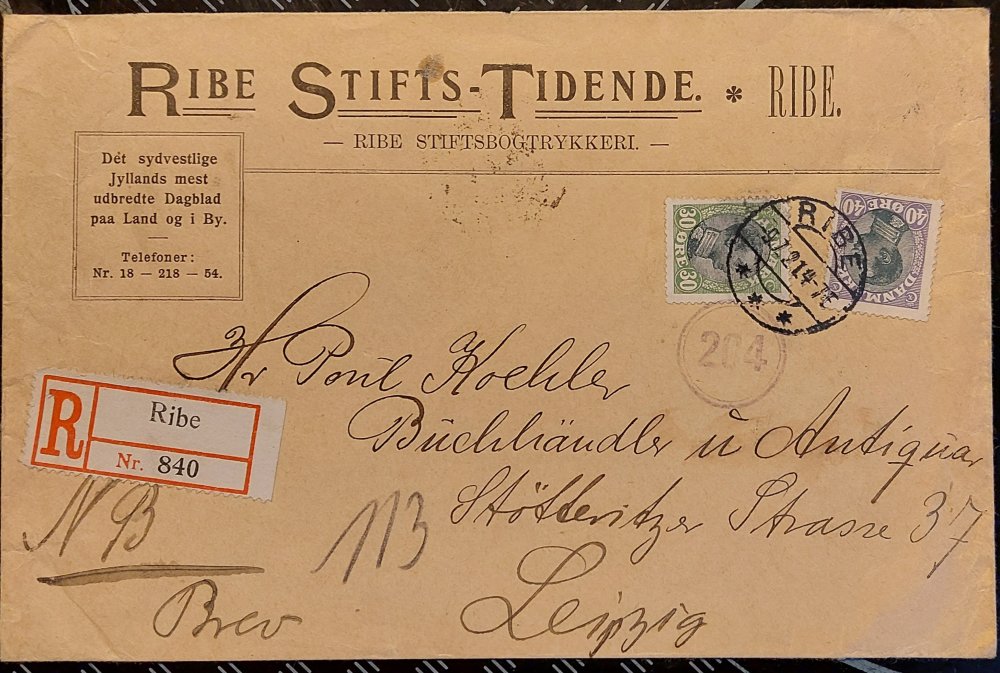 RIBE STIFTS-TIDENDE. * RIBE.
— RIBE STIFTSBOGTRYKKERI. —
Det sydvestlige
Jyllands mest
udbredte Dagblad
paa Land og i By.
Telefoner:
Nr. 18 — 218 — 54.
30 ØRE 30
40 ØRE 40
DANMARK
RIBE
204
Hr Poul Koehler
Buchhändler u Antiquar
Stötteritzer Strasse 37
Leipzig
R
Ribe
Nr. 840
NB
113
Brev